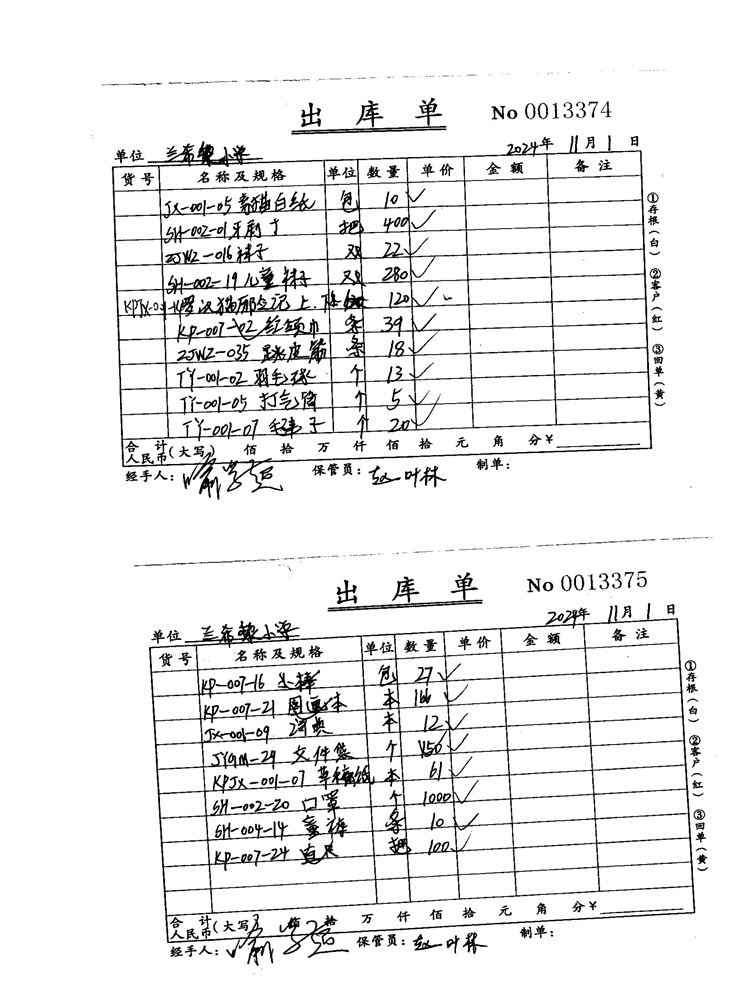 出 库 单 No 0013374
单位 兰希黎小学 2024年 11月 1日
货号 名称及规格 单位 数量 单价 金额 备注
JX-001-05 白纸 包 10 ✓
SH-002-01 牙刷 把 400 ✓
ZJWZ-016 袜子 双 22 ✓
SH-002-19 儿童袜子 双 280 ✓
罗汉猫那些记 上. 120 ✓
KP-007-02 红领巾 条 39 ✓
ZJWZ-035 跳皮筋 条 18 ✓
TY-001-02 羽毛球 个 13 ✓
TY-001-05 打气筒 个 5 ✓
TY-001-07 毛毽子 个 20 ✓
合计人民币(大写) 佰 拾 万 仟 佰 拾 元 角 分 ¥
经手人: 保管员: 赵叶林 制单:
①存根(白) ②客户(红) ③回单(黄)
出 库 单 No 0013375
单位 兰希黎小学 2024年 11月 1日
货号 名称及规格 单位 数量 单价 金额 备注
KP-007-16 小棒 包 27 ✓
KP-007-21 图画本 本 166 ✓
JX-001-09 词典 本 12 ✓
JYGM-29 文件筐 个 150 ✓
KPJX-001-07 草稿纸 本 61 ✓
SH-002-20 口罩 个 1000 ✓
SH-004-14 童裤 条 10 ✓
KP-007-24 直尺 把 100 ✓
合计人民币(大写) 佰 拾 万 仟 佰 拾 元 角 分 ¥
经手人: 保管员: 赵叶林 制单:
①存根(白) ②客户(红) ③回单(黄)